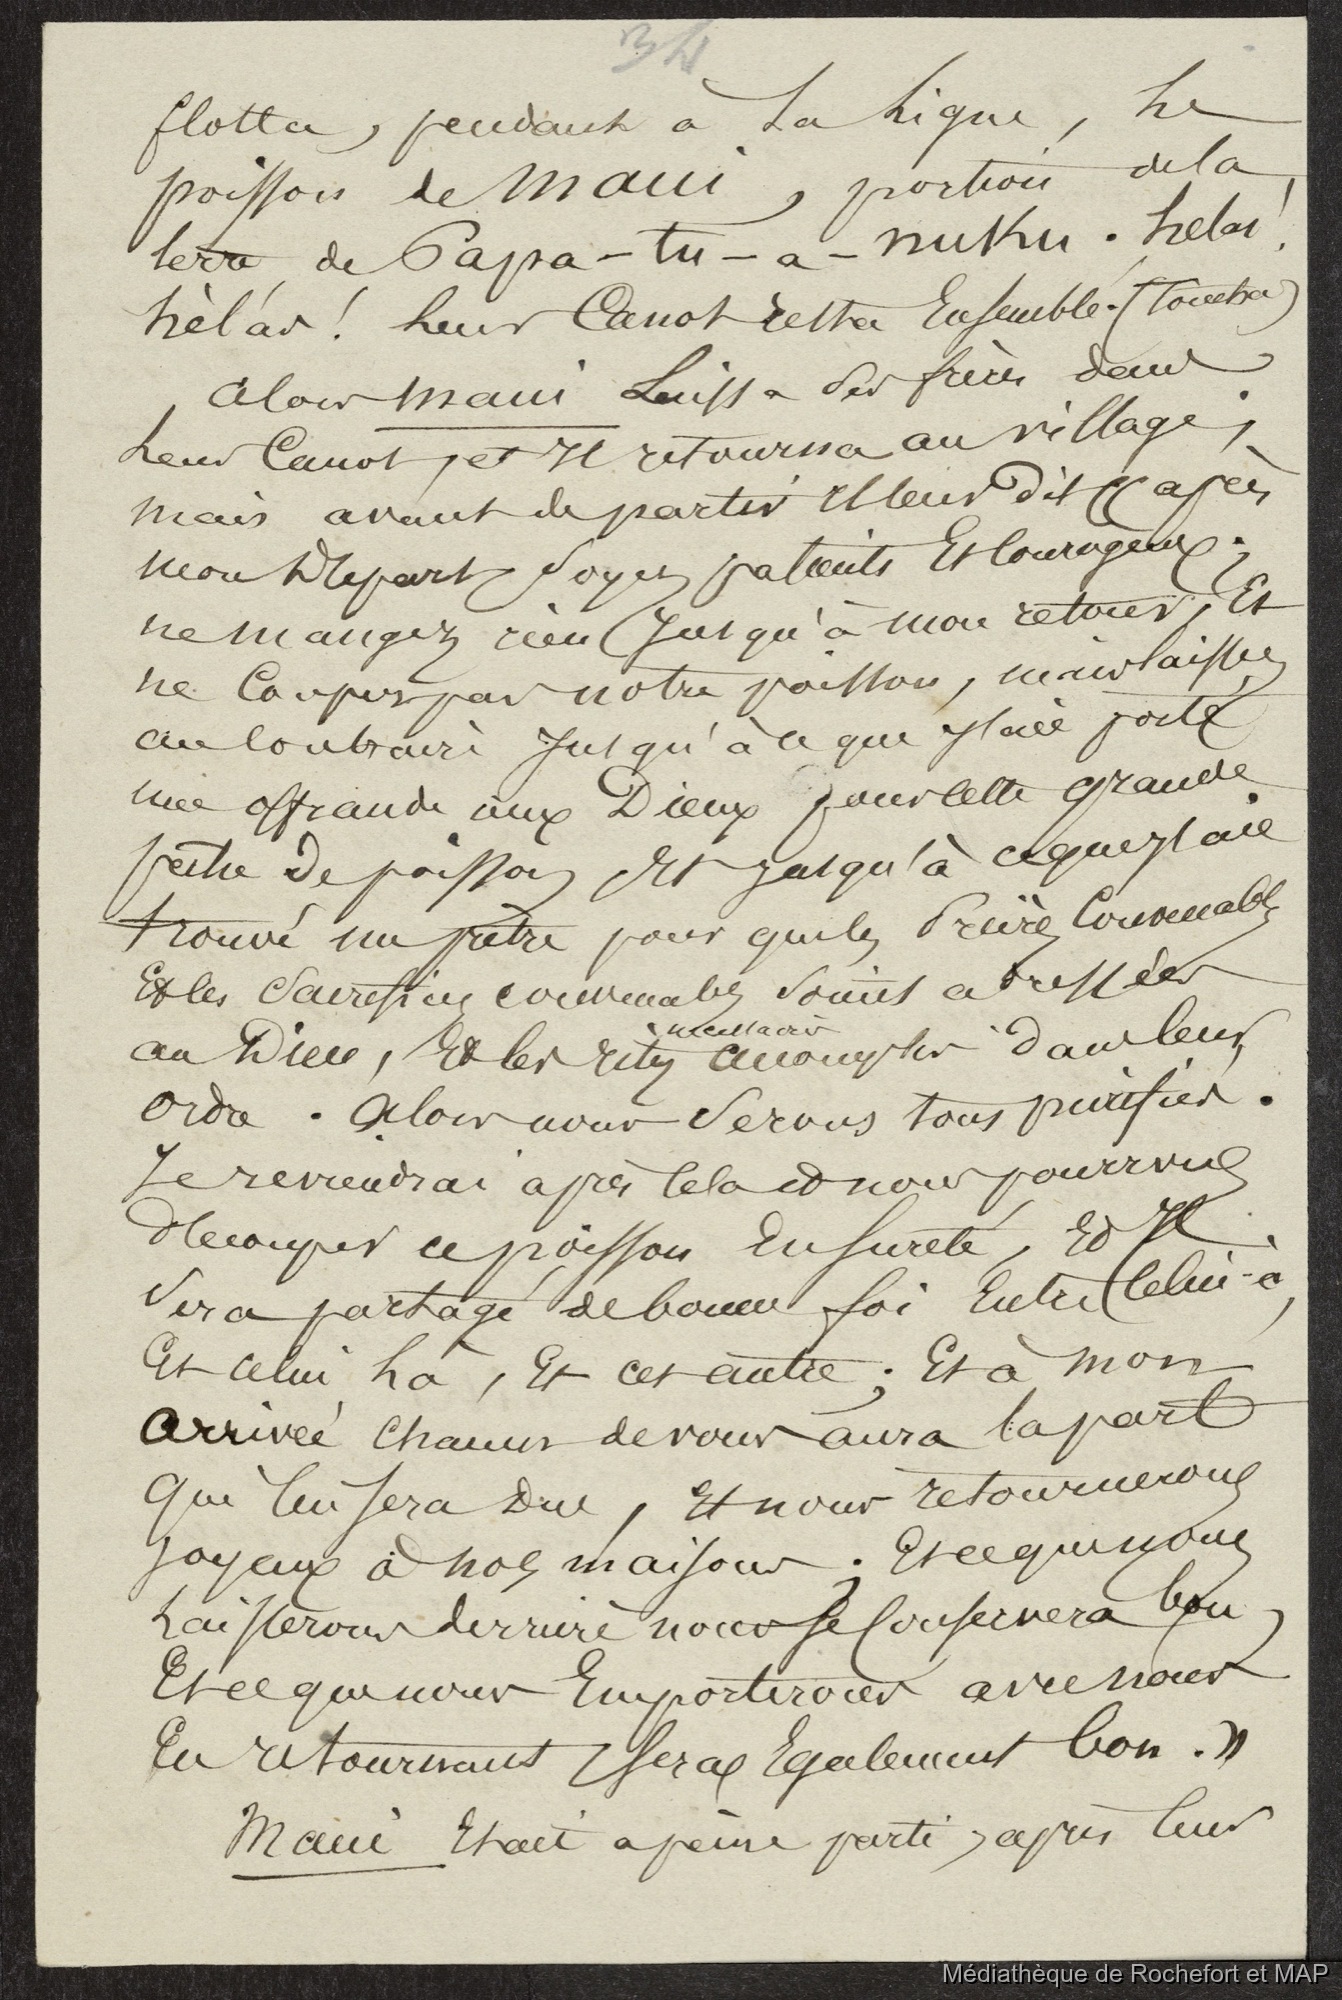 34
flotta, pendant à La Ligne, Le
poisson de Maui, portion de la
terre de Papa-tu-a-nuku. hélas!
hélas! Leur Canot resta Ensemble. (toucha)
alors Maui Laissa Ses frères dans
Leur Canot, et Il retourna au village;
mais avant de partir Il leur Dit « après
mon Départ Soyez patients Et Courageux;
ne mangez rien Jusqu'à mon retour, Et
ne Coupez pas notre poisson, mais laissez
au Contraire Jusqu'à ce que J'aie porté
une offrande aux Dieux pour Cette grande
pêche De poisson Et Jusqu'à ce que J'aie
trouvé un prêtre pour que les Prières Convenables
Et les Sacrifices convenables Soient adressées
au Dieu, Et les rites accomplis dans leur
nécessaires
ordre. alors nous Serons tous purifiés.
Je reviendrai après Cela et nous pourrons
Découper ce poisson En Sureté, Et Il
Sera partagé de bonne foi Entre Celui-ci,
Et celui Là, Et cet autre; Et à mon
arrivée chacun de vous aura la part
Qui lui sera Due, Et nous retournerons
Joyeux à nos maisons; Et ce que nous
Laisserons derrière nous se Conservera bon,
Et ce que nous Emporterons avec nous
En retournant sera Egalement bon. »
Maui Etait a peine parti, après leur
Médiathèque de Rochefort et MAP